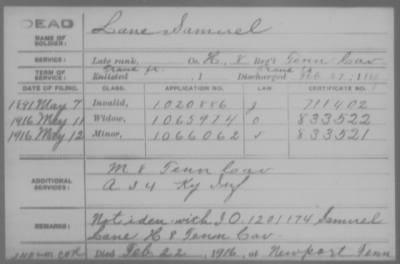 DEAD Lane Samuel
NAME OF
SOLDIER:
SERVICE: Late rank, Co. H, 8 Reg't Tenn Cav
TERM OF
SERVICE: Enlisted , 1 Discharged
DATE OF FILING. CLASS. APPLICATION NO. LAW. CERTIFICATE NO.
1891 May 7 Invalid, 1020886 J 711402
1916 May 11 Widow, 1065974 O 833522
1916 May 12 Minor, 1066062 833521
ADDITIONAL
SERVICES: M 8 Tenn Cav
A 34 Ky Inf
REMARKS: Not iden with I.O. 1281174 Samuel
Lane H 8 Tenn Cav.
Died Feb 22, 1916, at Newport Tenn